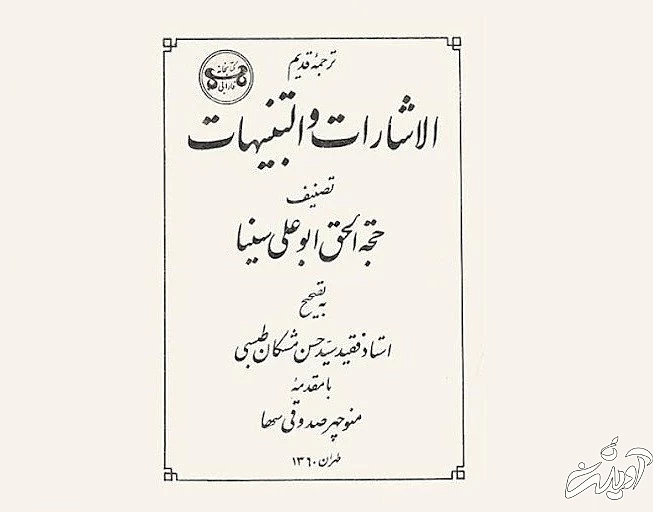 ترجمهٔ قدیم
کتابخانه
فارابی
الاشارات والتنبیهات
تصنیف
حجة الحق ابوعلی سینا
به تصحیح
استاد فقید سید حسن مشکان طبسی
با مقدمهٔ
منوچهر صدوقی سها
طهران ۱۳۶۰